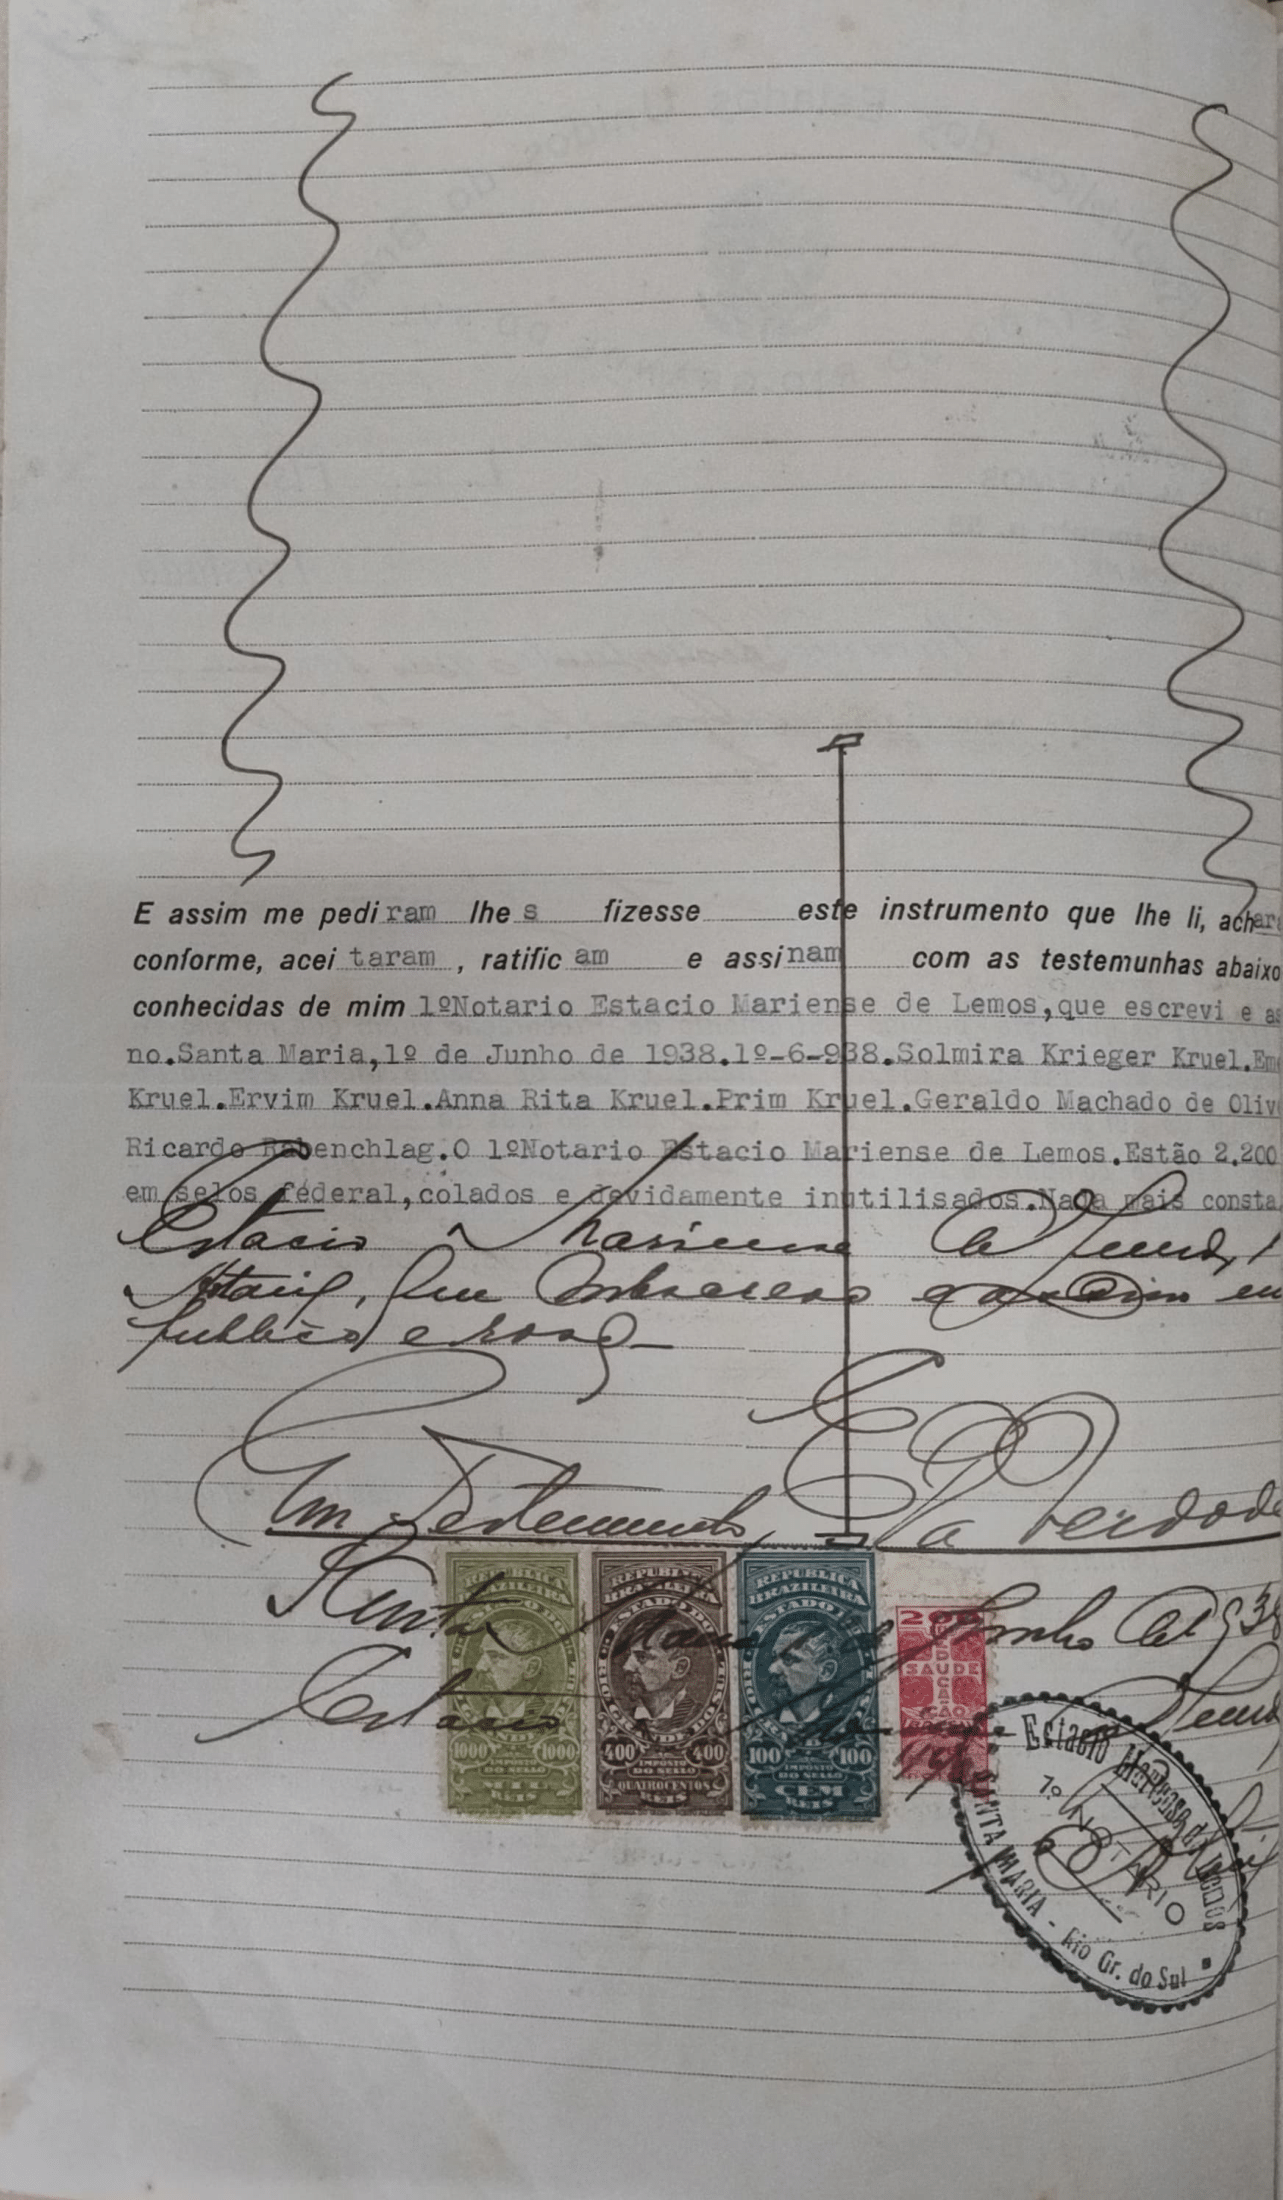 E assim me pediram lhes fizesse este instrumento que lhe li, achar
conforme, aceitaram, ratificam e assinam com as testemunhas abaixo
conhecidas de mim 1ºNotario Estacio Mariense de Lemos,que escrevi e as
no.Santa Maria,1º de Junho de 1938.1º-6-938.Solmira Krieger Kruel.Eme
Kruel.Ervim Kruel.Anna Rita Kruel.Prim Kruel.Geraldo Machado de Olive
Ricardo Rabenchlag.O 1ºNotario Estacio Mariense de Lemos.Estão 2.200
em selos féderal,colados e devidamente inutilisados.Nada mais consta.
Estacio Mariense de Lemos, 1
Notario, que subscrevo e assino em
publico e raso
Em Testemunho da verdade
Santa Maria 1 de Junho de 1938
Estacio Mariense de Lemos
REPUBLICA BRAZILEIRA
ESTADO DO RIO GRANDE DO SUL
1000 1000
IMPOSTO DO SELLO
MIL REIS
REPUBLICA BRAZILEIRA
ESTADO DO RIO GRANDE DO SUL
400 400
IMPOSTO DO SELLO
QUATROCENTOS REIS
REPUBLICA BRAZILEIRA
ESTADO DO RIO GRANDE DO SUL
100 100
IMPOSTO DO SELLO
CEM REIS
200
EDUCAÇÃO
SAUDE
Estacio Mariense de Lemos
1º NOTARIO
SANTA MARIA - Rio Gr. do Sul